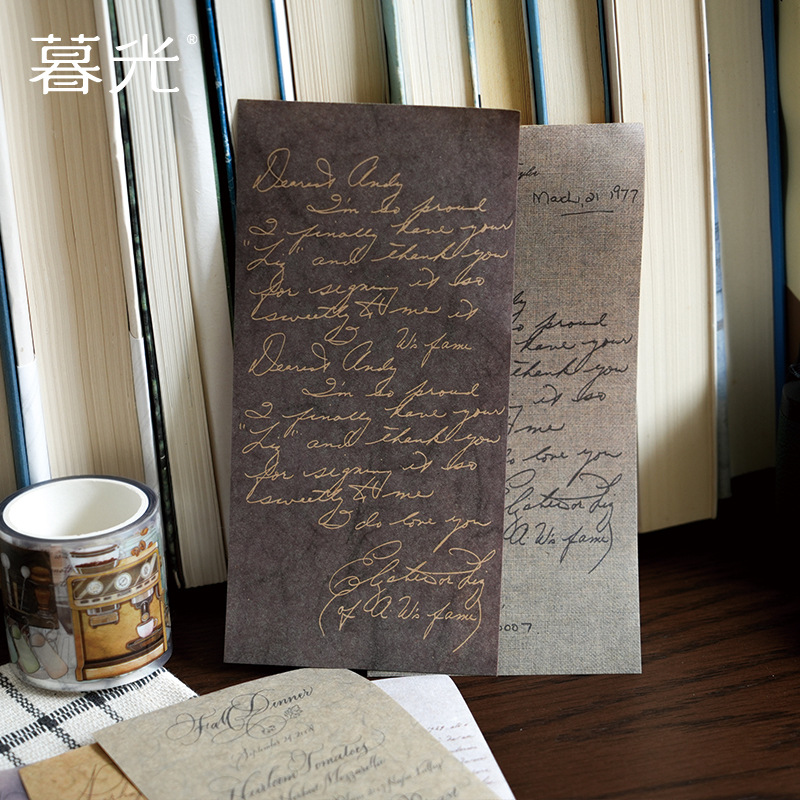 暮光®
Dearest Andy
I'm so proud
I finally have your
"Liz" and thank you
for signing it so
sweetly to me it
W's fame
Dearest Andy
I'm so proud
I finally have your
"Liz" and thank you
for signing it so
sweetly to me
I do love you
(of A W's fame)
Mach, 21 1977
so proud
have your
thank you
it so
me
do love you
A W's fame)
0007.
Fall Dinner
Heirloom Tomatoes
Mozzarella
Napa Valley